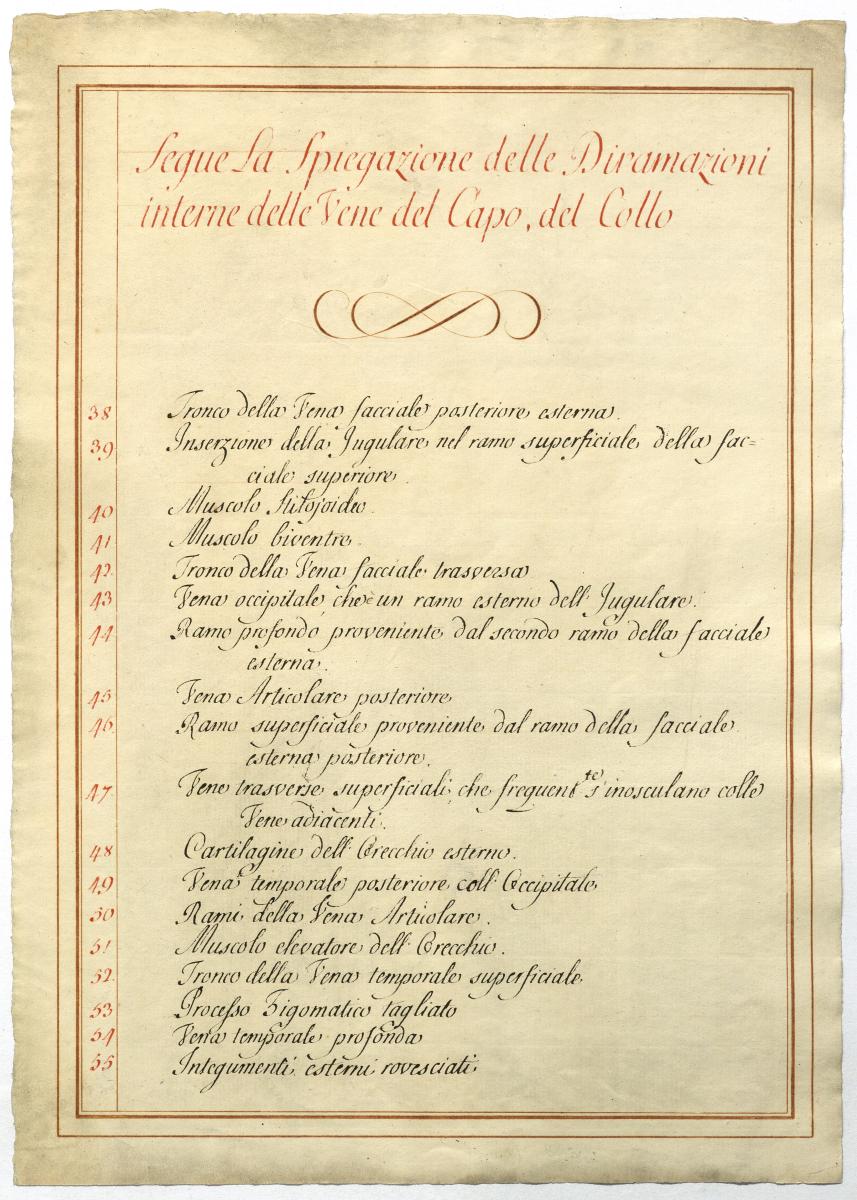 Segue La Spiegazione delle Diramazioni
interne delle Vene del Capo, del Collo
38 Tronco della Vena facciale posteriore esterna.
39 Inserzione della Jugulare nel ramo superficiale della fac=
ciale superiore.
40 Muscolo Stilojoideo.
41 Muscolo biventre.
42. Tronco della Vena facciale trasversa
43 Vena occipitale, che è un ramo esterno dell' Jugulare.
44 Ramo profondo proveniente dal secondo ramo della facciale
esterna.
45 Vena Articolare posteriore
46. Ramo superficiale proveniente dal ramo della facciale
esterna posteriore.
47 Vene trasverse superficiali, che frequent.te s'inosculano colle
Vene adiacenti.
48 Cartilagine dell' Orecchio esterno.
49 Vena temporale posteriore coll' Occipitale
50 Rami della Vena Articolare.
51 Muscolo elevatore dell' Orecchio.
52. Tronco della Vena temporale superficiale
53 Processo Zigomatico tagliato
54 Vena temporale profonda
55 Integumenti esterni rovesciati